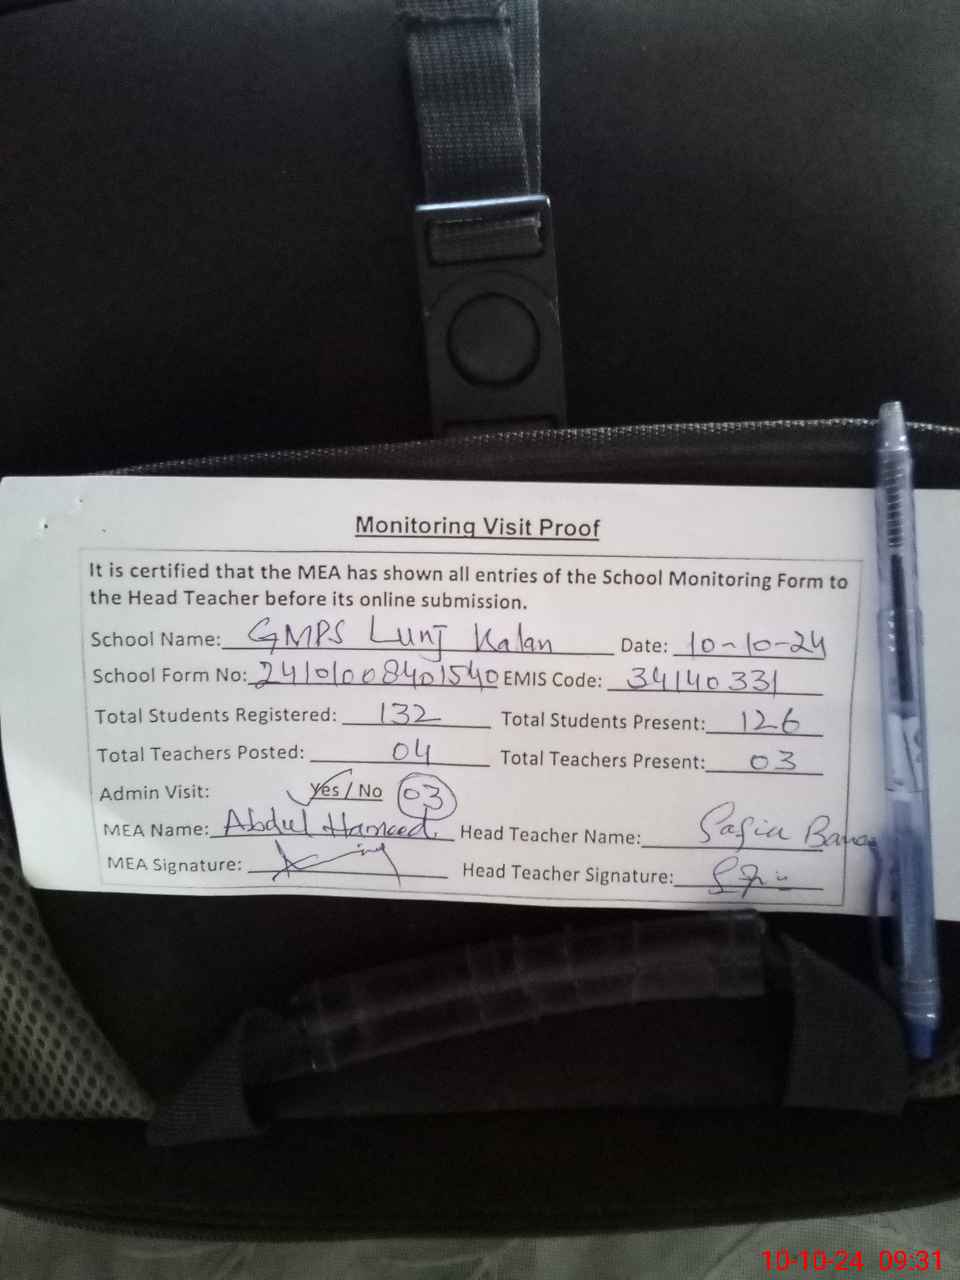 Monitoring Visit Proof
It is certified that the MEA has shown all entries of the School Monitoring Form to
the Head Teacher before its online submission.
School Name: GMPS Lunj Kalan Date: 10-10-24
School Form No: 24101008401540 EMIS Code: 34140331
Total Students Registered: 132 Total Students Present: 126
Total Teachers Posted: 04 Total Teachers Present: 03
Admin Visit: Yes / No 03
MEA Name: Abdul Hameed Head Teacher Name: Safia
MEA Signature: Head Teacher Signature:
10-10-24 09:31